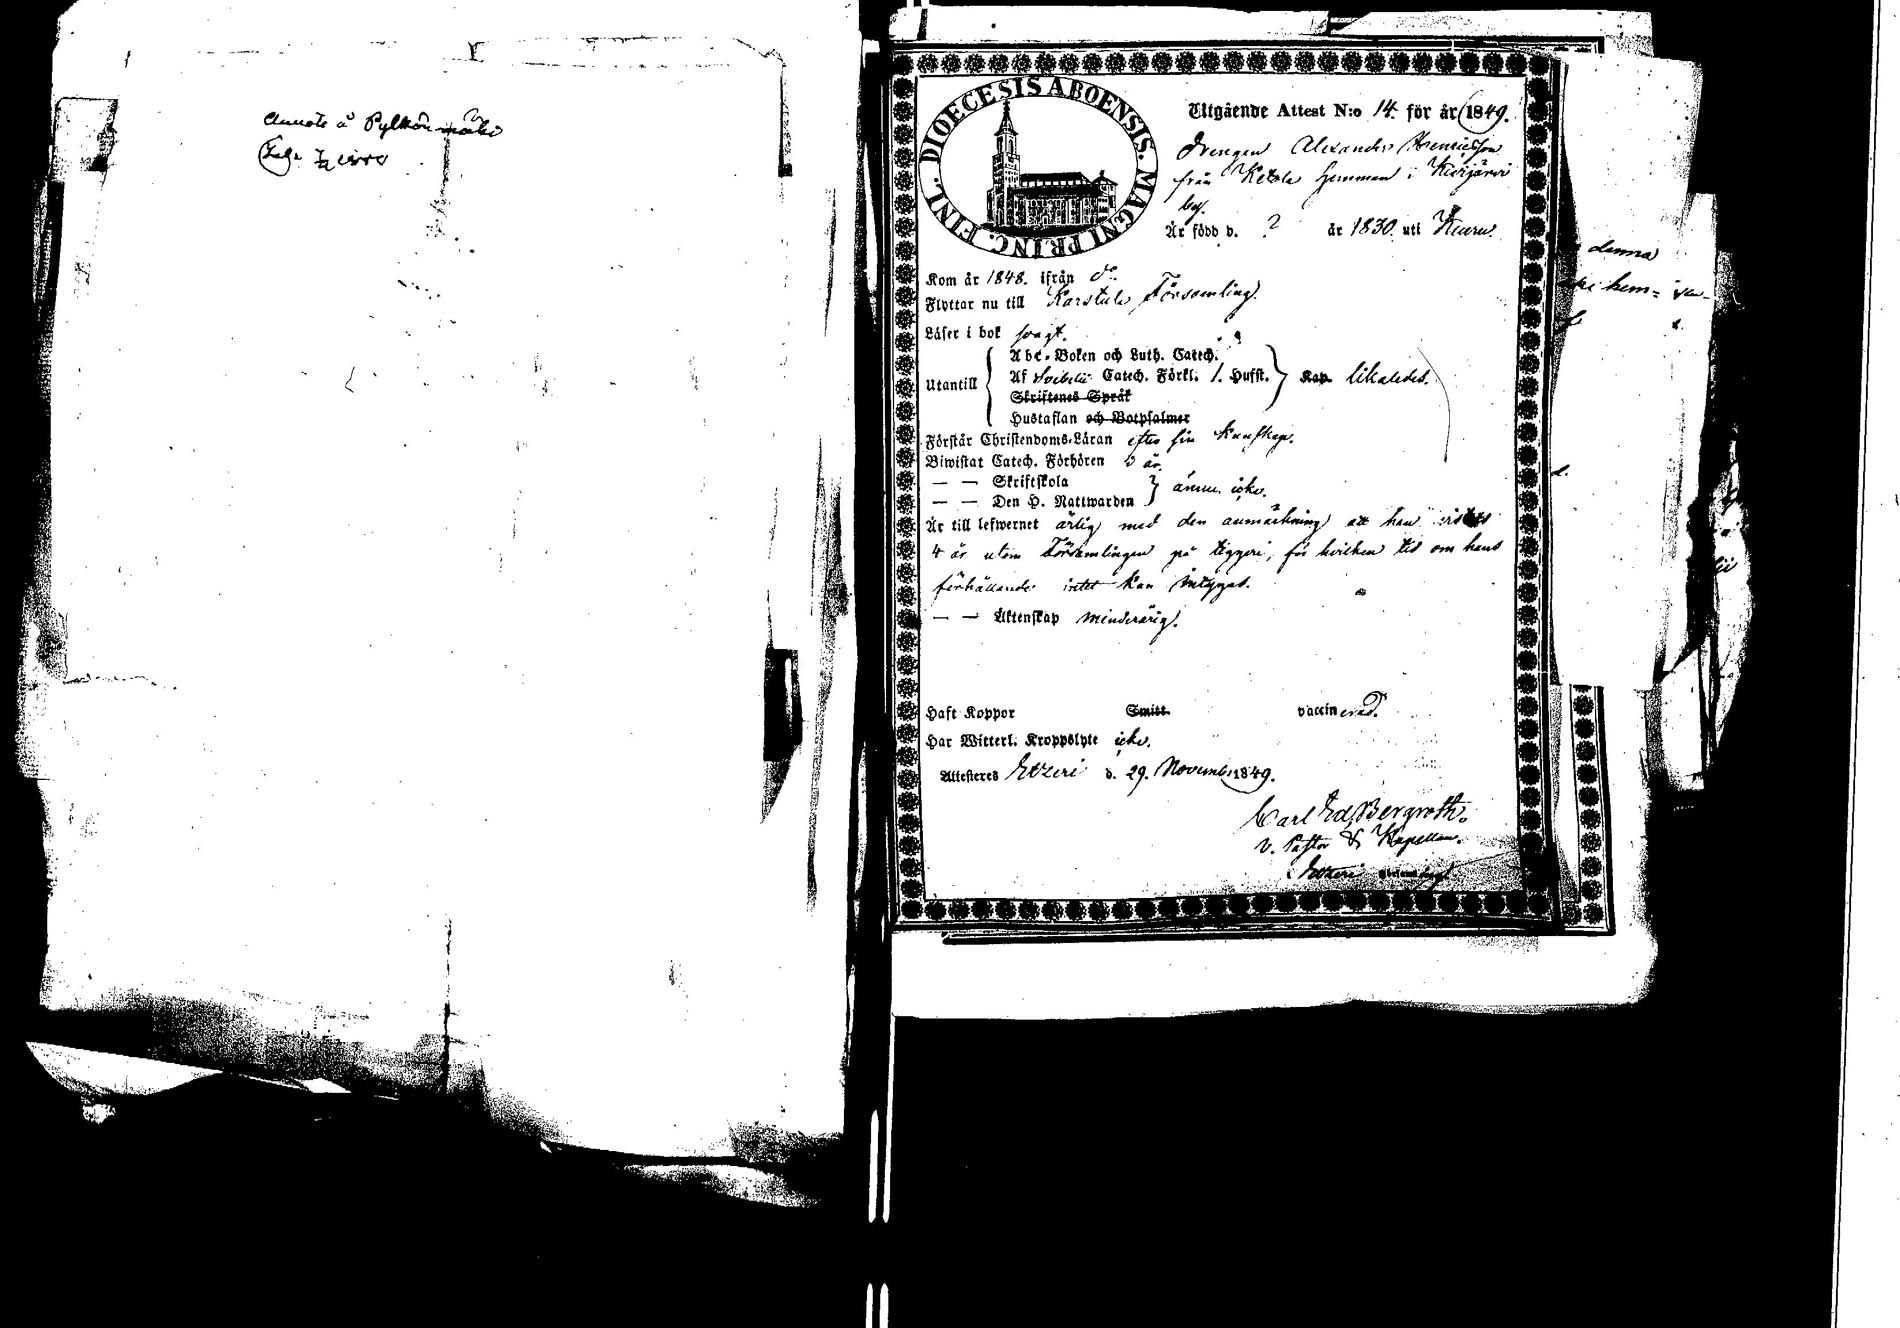 Annote å Pylkönmäki
DIOECESIS ABOENSIS. MAGNI PRINC. FINL.
Utgående Attest N:o 14. för år 1849.
Drengen Alexander Henricsson
från Ketola Hemman i Kivijärvi
by.
Är född d. ? år 1830 uti Keuru.
Kom år 1848. ifrån d:o
Flyttar nu till Karstula Församling.
Läser i bok svagt.
Utantill
Abc-Boken och Luth. Catech.
Af Svebelii Catech. Förkl. 1. Hufst. Kap. likaledes.
Skriftenes Språk
Hustaflan och Botpsalmer
Förstår Christendoms-Läran efter sin kunskap.
Biwistat Catech. Förhören 3 år.
— — Skriftskola
— — Den H. Nattwarden ännu icke.
Är till lefwernet ärlig med den anmärkning att han vistats
4 år utom Församlingen på tiggeri, för hvilken tid om hans
förhållande intet kan intygas.
— — Äktenskap minderårig.
Haft Koppor Smitt. vaccinerad.
Har Witterl. Kroppslyte icke.
Attesteres Etzeri d. 29. Novemb. 1849.
Carl Ed. Bergroth.
V. Pastor & Kapellan.
Etzeri
denna
hem=